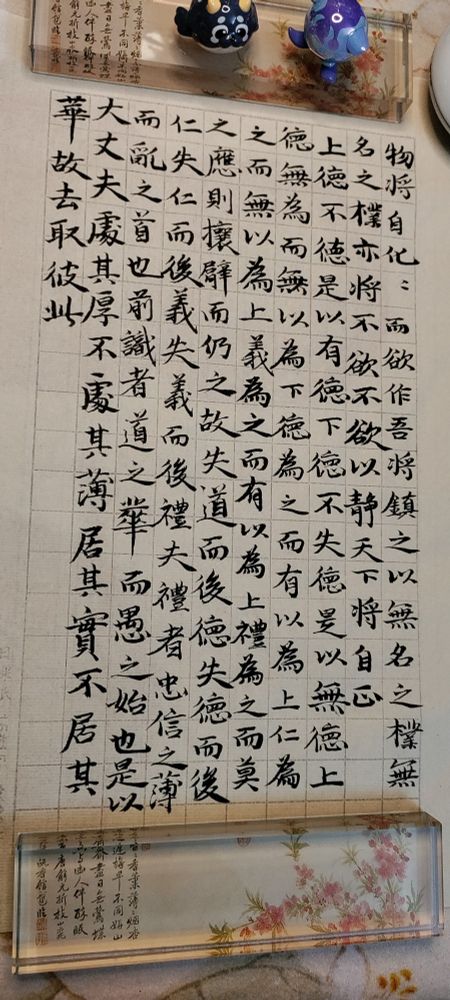 物將自化〻而欲作吾將鎮之以無名之樸無
名之樸亦將不欲不欲以静天下將自正
上德不德是以有德下德不失德是以無德上
德無為而無以為下德為之而有以為上仁為
之而無以為上義為之而有以為上禮為之而莫
之應則攘臂而仍之故失道而後德失德而後
仁失仁而後義失義而後禮夫禮者忠信之薄
而亂之首也前識者道之華而愚之始也是以
大丈夫處其厚不處其薄居其實不居其
華故去取彼此